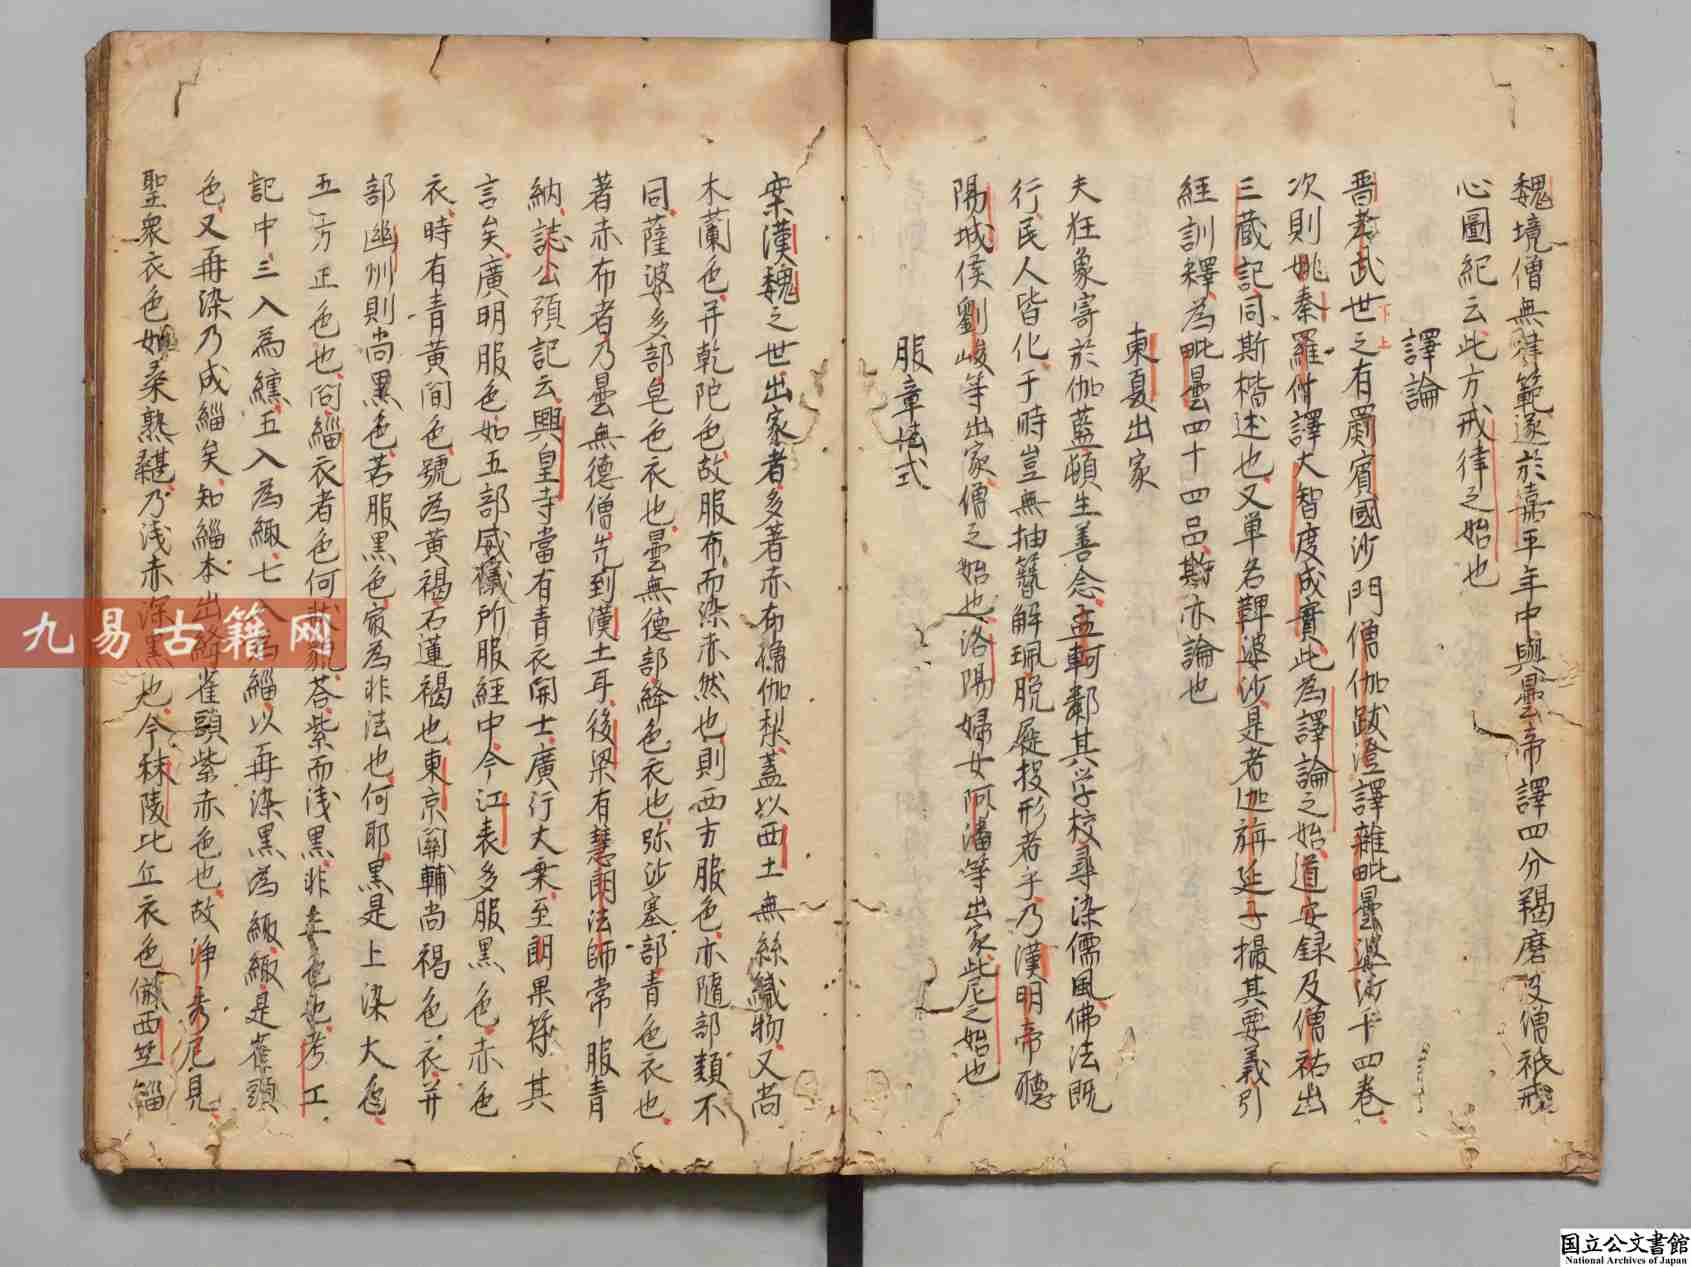 魏境僧無律範遂於嘉平年中與曇帝譯四分羯磨及僧祇戒
心圖紀云此方戒律之始也
譯論
晋孝武世之有罽賓國沙門僧伽跋澄譯雜毗曇婆沙十四卷
次則姚秦羅什譯大智度成實此為譯論之始道安録及僧祐出
三蔵記同斯楷述也又単名鞞婆沙是者迦旃延子撮其要義引
經訓釋為毗曇四十四品斯亦論也
東夏出家
夫狂象寄於伽藍頓生善念孟軻鄰其学校尋染儒風佛法既
行民人皆化于時豈無抽簪解珮脱屣投形者乎乃漢明帝聴
陽城侯劉峻等出家僧之始也洛陽婦女阿潘等出家此尼之始也
服章法式
案漢魏之世出家者多著赤布僧伽梨蓋以西土無絲織物又尚
木蘭色并乾陀色故服布而染赤然也則西方服色亦隨部類不
同薩婆多部皂色衣也曇無徳部絳色衣也弥沙塞部青色衣也
著赤布者乃曇無徳僧先到漢土耳後梁有慧朗法師常服青
納誌公預記云興皇寺當有青衣開士廣行大乗至朗果符其
言矣廣明服色如五部威儀所服経中今江表多服黒色赤色
衣時有青黄間色號為黄褐石蓮褐也東京関輔尚褐色衣并
部幽州則尚黒色若服黒色最為非法也何耶黒是上染大色
五方正色也問緇衣者色何状貌荅紫而浅黒非正色也考工
記中三入為纁五入為緅七入為緇以再染黒為緅緅是雀頭
色又再染乃成緇矣知緇本出絳雀頭紫赤色也故浄秀尼見
聖衆衣色如桑熟椹乃浅赤深黒也今秣陵比丘衣色倣西竺緇
九易古籍网
国立公文書館
National Archives of Japan